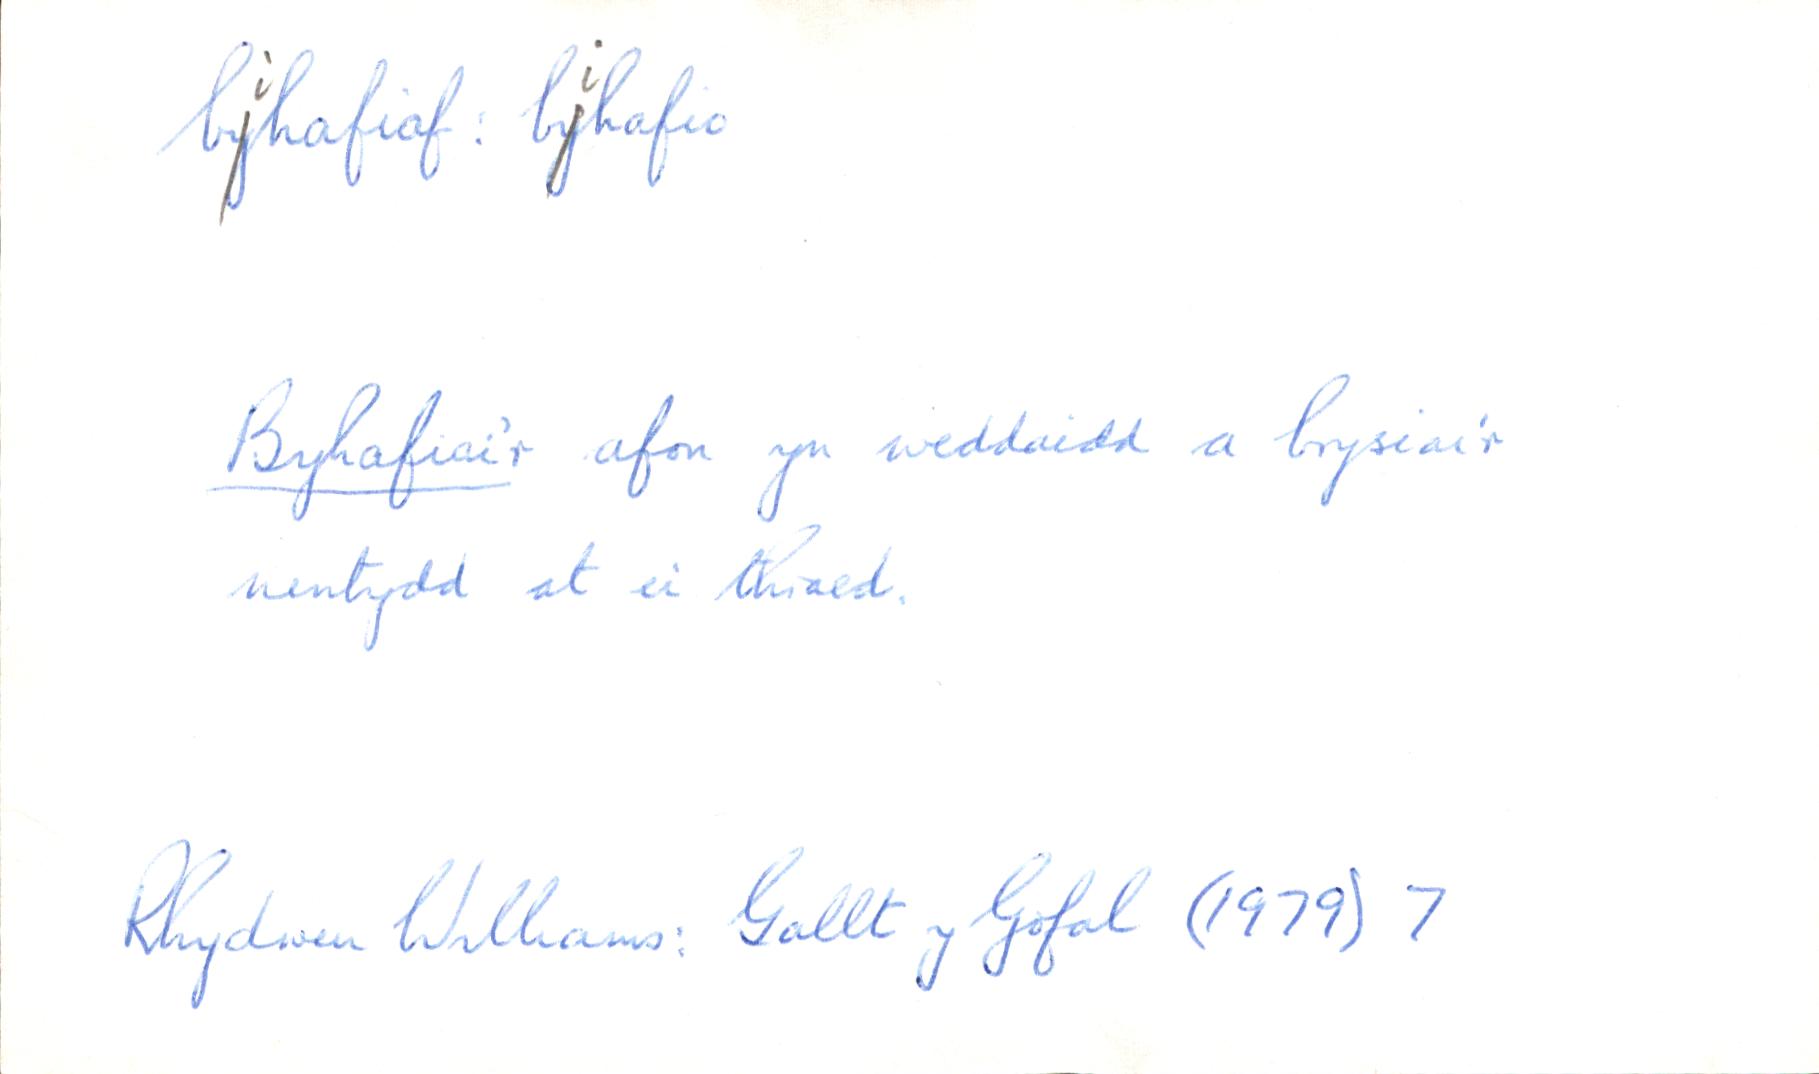 bihafiaf: bihafio
Byhafiai'r afon yn weddaidd a brysiai'r
nentydd at ei thraed.
Rhydwen Williams: Gallt y Gofal (1979) 7